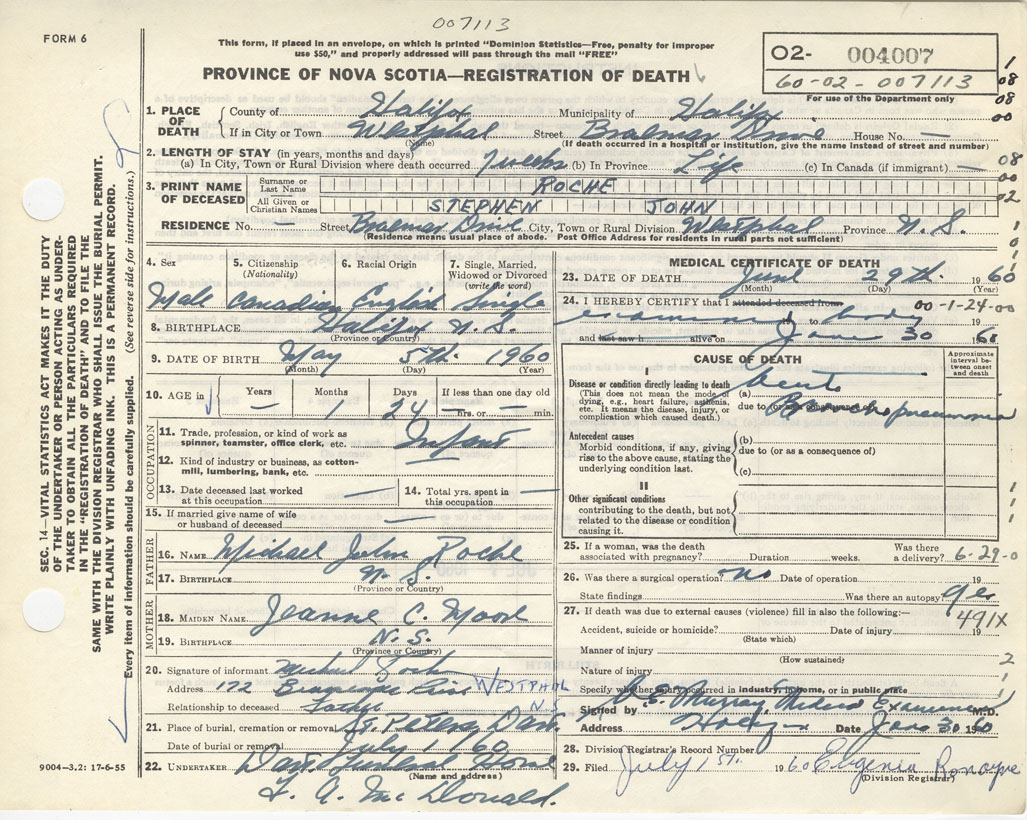 007113
FORM 6
This form, if placed in an envelope, on which is printed "Dominion Statistics—Free, penalty for improper
use $50," and properly addressed will pass through the mail "FREE"
02- 004007
60-02-007113
For use of the Department only
PROVINCE OF NOVA SCOTIA—REGISTRATION OF DEATH
1. PLACE OF DEATH
County of Halifax Municipality of Halifax
If in City or Town Westphal Street Drive House No. —
(Name) (If death occurred in a hospital or institution, give the name instead of street and number)
2. LENGTH OF STAY (in years, months and days)
(a) In City, Town or Rural Division where death occurred 7 weeks (b) In Province Life (c) In Canada (if immigrant) —
3. PRINT NAME OF DECEASED
Surname or Last Name ROCHE
All Given or Christian Names STEPHEN JOHN
RESIDENCE No. — Street Drive City, Town or Rural Division Westphal Province N. S.
(Residence means usual place of abode. Post Office Address for residents in rural parts not sufficient)
4. Sex 5. Citizenship (Nationality) 6. Racial Origin 7. Single, Married, Widowed or Divorced (write the word)
Male Canadian English Single
8. BIRTHPLACE Halifax N. S.
(Province or Country)
9. DATE OF BIRTH May 5th 1960
(Month) (Day) (Year)
10. AGE in Years — Months 1 Days 24 If less than one day old — hrs. or — min.
OCCUPATION
11. Trade, profession, or kind of work as spinner, teamster, office clerk, etc. Infant
12. Kind of industry or business, as cotton-mill, lumbering, bank, etc. —
13. Date deceased last worked at this occupation — 14. Total yrs. spent in this occupation —
15. If married give name of wife or husband of deceased —
FATHER
16. NAME Michael John Roche
17. BIRTHPLACE N. S.
(Province or Country)
MOTHER
18. MAIDEN NAME Jeanne C.
19. BIRTHPLACE N. S.
(Province or Country)
20. Signature of informant Michael Roche
Address 172 Drive WESTPHAL N.S.
Relationship to deceased Father
21. Place of burial, cremation or removal St. Peters Dart.
Date of burial or removal July 1 1960
22. UNDERTAKER Dart Funeral Home
(Name and address)
McDonald.
MEDICAL CERTIFICATE OF DEATH
23. DATE OF DEATH June 29th 1960
(Month) (Day) (Year)
24. I HEREBY CERTIFY that I attended deceased from 00-1-24-00
examined to body 19
and last saw h alive on June 30 1960
CAUSE OF DEATH
Approximate interval between onset and death
I
Disease or condition directly leading to death
(This does not mean the mode of dying, e.g., heart failure, asthenia, etc. It means the disease, injury, or complication which caused death.)
(a) Acute
due to (or as consequence of) Bronchopneumonia
Antecedent causes
Morbid conditions, if any, giving rise to the above cause, stating the underlying condition last.
(b)
due to (or as a consequence of)
(c)
II
Other significant conditions
contributing to the death, but not related to the disease or condition causing it.
25. If a woman, was the death associated with pregnancy? Duration weeks. Was there a delivery? 6-29-0
26. Was there a surgical operation? no Date of operation 19
State findings Was there an autopsy? yes
27. If death was due to external causes (violence) fill in also the following:— 491X
Accident, suicide or homicide? Date of injury 19
(State which)
Manner of injury
(How sustained)
Nature of injury
Specify whether injury occurred in industry, in home, or in public place
Signed by Murray Medical Examiner M.D.
Address Halifax Date June 30 1960
28. Division Registrar's Record Number
29. Filed July 1st. 1960 Eugenia Ronayne
(Division Registrar)
SEC. 14—VITAL STATISTICS ACT MAKES IT THE DUTY
OF THE UNDERTAKER OR PERSON ACTING AS UNDER-
TAKER TO OBTAIN ALL THE PARTICULARS REQUIRED
IN THE "REGISTRATION OF DEATH" AND FILE THE
SAME WITH THE DIVISION REGISTRAR WHO SHALL ISSUE THE BURIAL PERMIT.
WRITE PLAINLY WITH UNFADING INK. THIS IS A PERMANENT RECORD.
Every item of information should be carefully supplied. (See reverse side for instructions.)
9004-3.2: 17-6-55
1
08
08
00
08
00
02
1
0
1
1
1
1
2
1
0